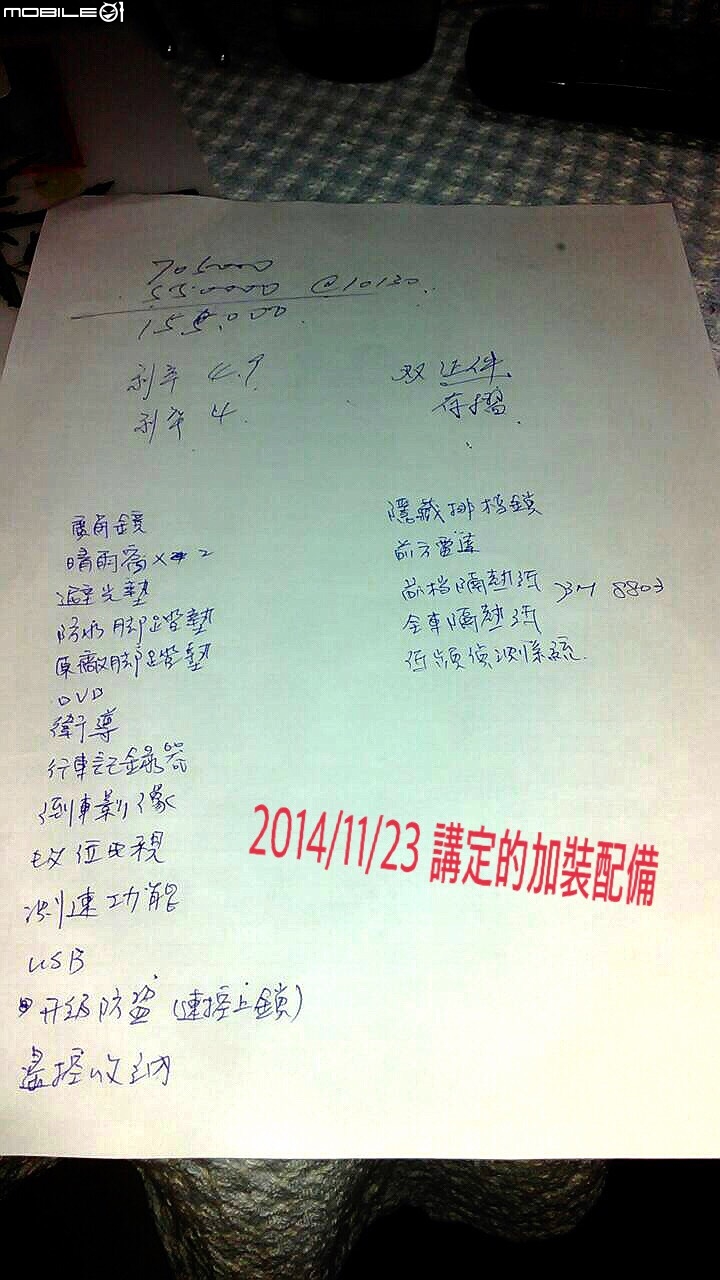 MOBILE01
705000
550000 @10130
155,000
利率 4.9
利率 4
双证件
存摺
廣角鏡
晴雨窗 x 2
避光墊
防水腳踏墊
原廠腳踏墊
DVD
衛導
行車記錄器
倒車影像
数位电視
測速功能
USB
升级防盗 (連控上鎖)
遙控收納
隱藏排檔鎖
前方雷達
前档隔熱纸 3M 8803
全車隔熱纸
低頻偵測系統
2014/11/23 講定的加裝配備